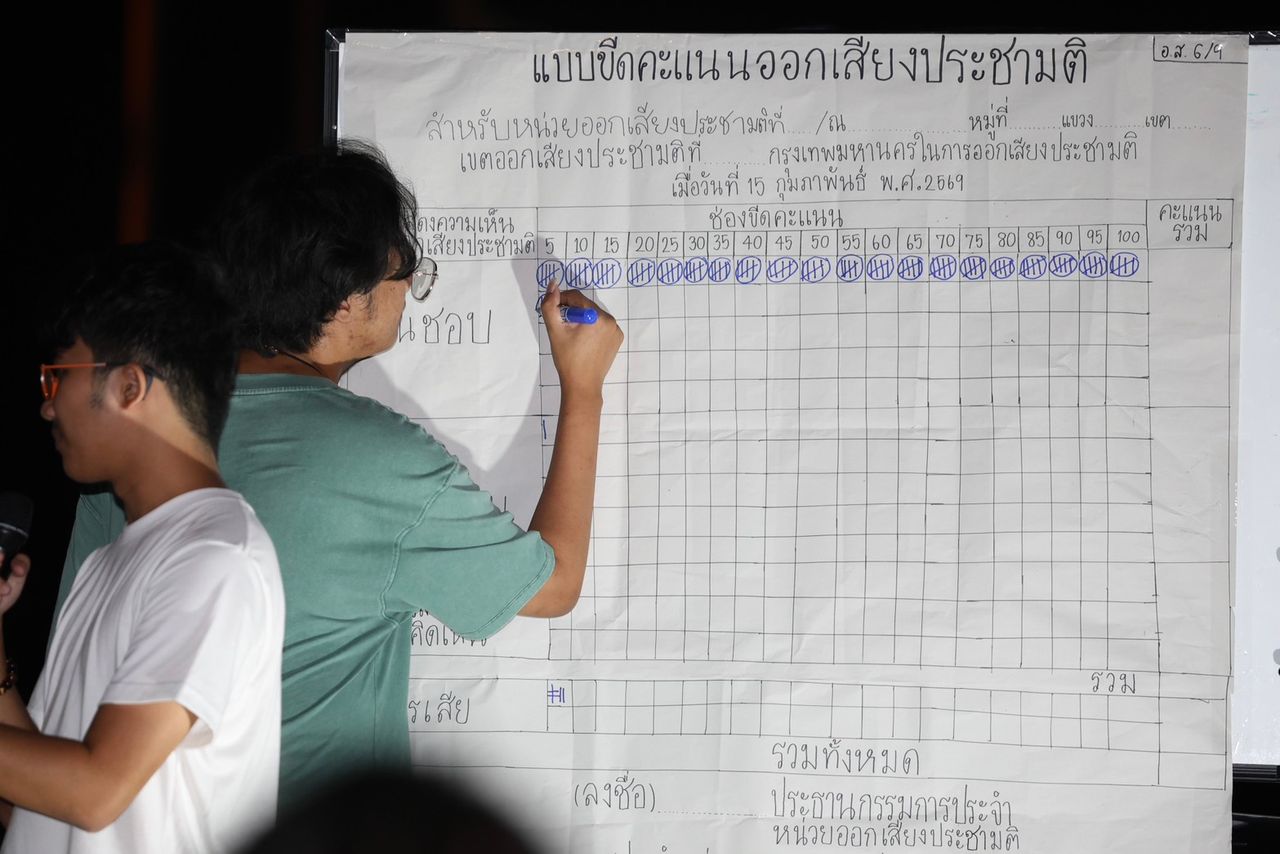 แบบขีดคะแนนออกเสียงประชามติ
อ.ส. 6/9
สำหรับหน่วยออกเสียงประชามติที่..../ณ..................หมู่ที่........แขวง.......เขต.......
เขตออกเสียงประชามติที่..........กรุงเทพมหานครในการออกเสียงประชามติ
เมื่อวันที่ 15 กุมภาพันธ์ พ.ศ.2569
ช่องขีดคะแนน
คะแนน
รวม
ความเห็น
เสียงประชามติ
5 10 15 20 25 30 35 40 45 50 55 60 65 70 75 80 85 90 95 100
ชอบ
รวม
เสีย
รวมทั้งหมด
(ลงชื่อ)..................ประธานกรรมการประจำ
หน่วยออกเสียงประชามติ